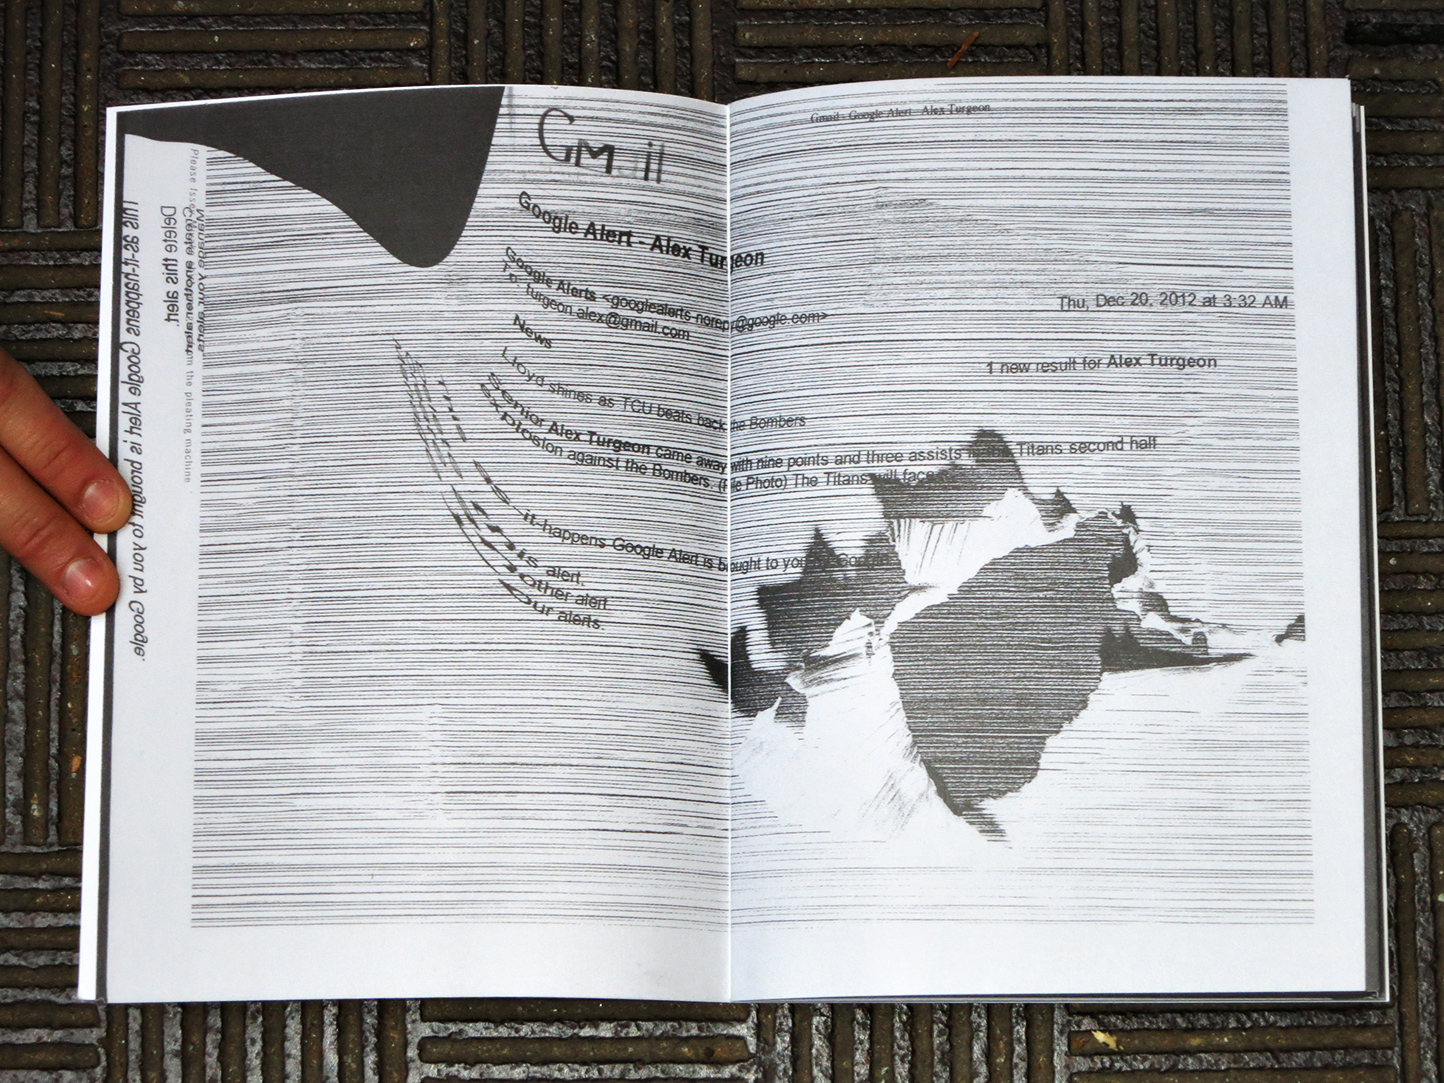 Gmail - Google Alert - Alex Turgeon
Gmail
Google Alert - Alex Turgeon
Google Alerts <googlealerts-noreply@google.com>
To: turgeon.alex@gmail.com
Thu, Dec 20, 2012 at 3:32 AM
News
1 new result for Alex Turgeon
Lloyd shines as TCU beats back the Bombers
Senior Alex Turgeon came away with nine points and three assists in the Titans second half
explosion against the Bombers. (File Photo) The Titans will face
This as-it-happens Google Alert is brought to you by Google.
this alert.
other alert
our alerts.
This as-it-happens Google Alert is brought to you by Google.
Delete this alert.
Create another alert.
Manage your alerts.
Please
from the pleating machine